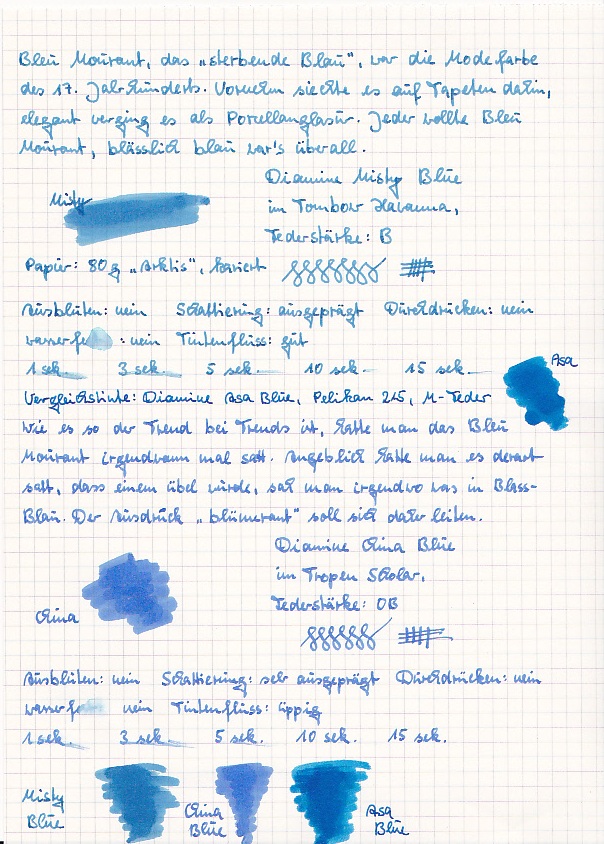 Bleu Mourant, das „sterbende Blau“, war die Modefarbe
des 17. Jahrhunderts. Vornehm siechte es auf Tapeten dahin,
elegant verging es als Porzellanglasur. Jeder wollte Bleu
Mourant, blässlich blau war's überall.
Diamine Misty Blue
Misty
im Tombow Havanna,
Federstärke: B
Papier: 80g „Arktis“, kariert
Ausbluten: nein Schattierung: ausgeprägt Durchdrücken: nein
wasserfe : nein Tintenfluss: gut
1 sek. 3 sek. 5 sek. 10 sek. 15 sek.
Asa
Vergleichstinte: Diamine Asa Blue, Pelikan 215, M-Feder
Wie es so der Trend bei Trends ist, hatte man das Bleu
Mourant irgendwann mal satt. Angeblich hatte man es derart
satt, dass einem übel würde, sah man irgendwo was in Blass-
Blau. Der Ausdruck „blümerant“ soll sich daher leiten.
Diamine China Blue
im Tropen Scholar,
Federstärke: OB
China
Ausbluten: nein Schattierung: sehr ausgeprägt Durchdrücken: nein
wasserfe nein Tintenfluss: üppig
1 sek. 3 sek. 5 sek. 10 sek. 15 sek.
Misty
Blue
China
Blue
Asa
Blue